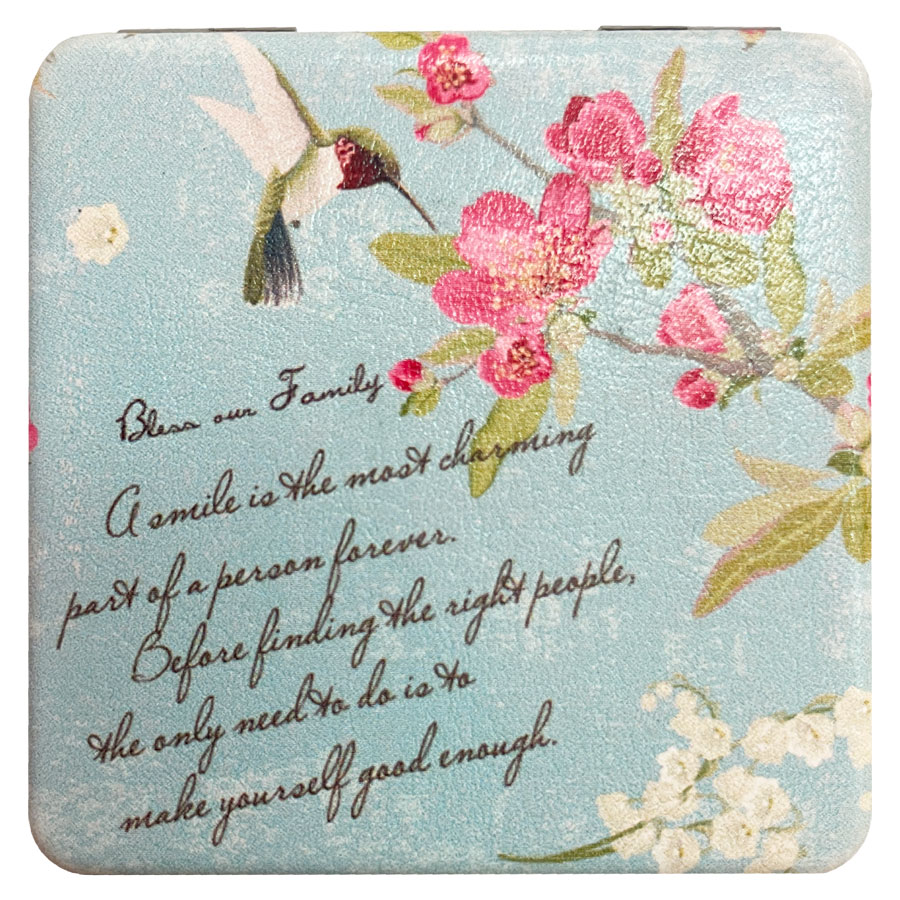 Bless our Family
A smile is the most charming
part of a person forever.
Before finding the right people,
the only need to do is to
make yourself good enough.